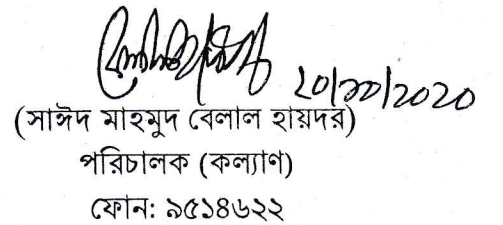 ২০/১০/২০২০
(সাঈদ মাহমুদ বেলাল হায়দর)
পরিচালক (কল্যাণ)
ফোন: ৯৫১৪৬২২